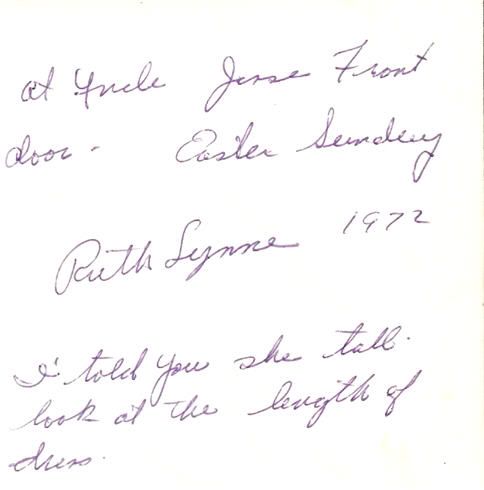 at Uncle Jesse Front
door - Easter Sunday
Ruth Lynne 1972
I told you she tall.
look at the length of
dress.